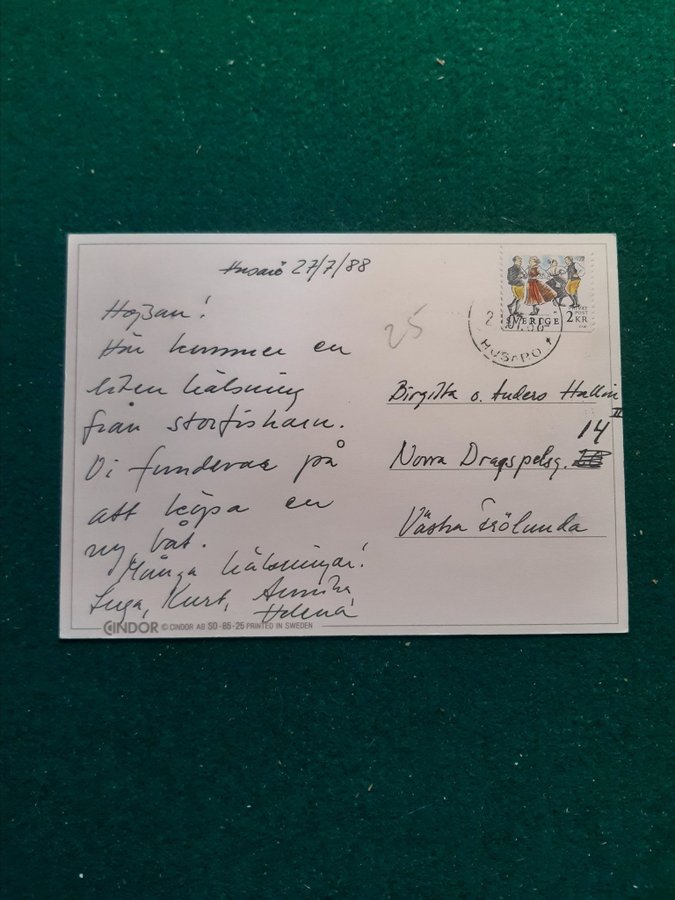 Husarö 27/7/88
Hejsan!
Här kommer en
liten hälsning
från storfiskarn.
Vi funderar på
att köpa en
ny båt.
Många hälsningar!
Inga, Kurt, Annika
Helena
25
SVERIGE
PRIVAT
POST
2 KR
HUSARÖ
Birgitta o. Anders Hallin
II
14
Norra Dragspelsg.
Västra Frölunda
CINDOR © CINDOR AB SO-85-25 PRINTED IN SWEDEN